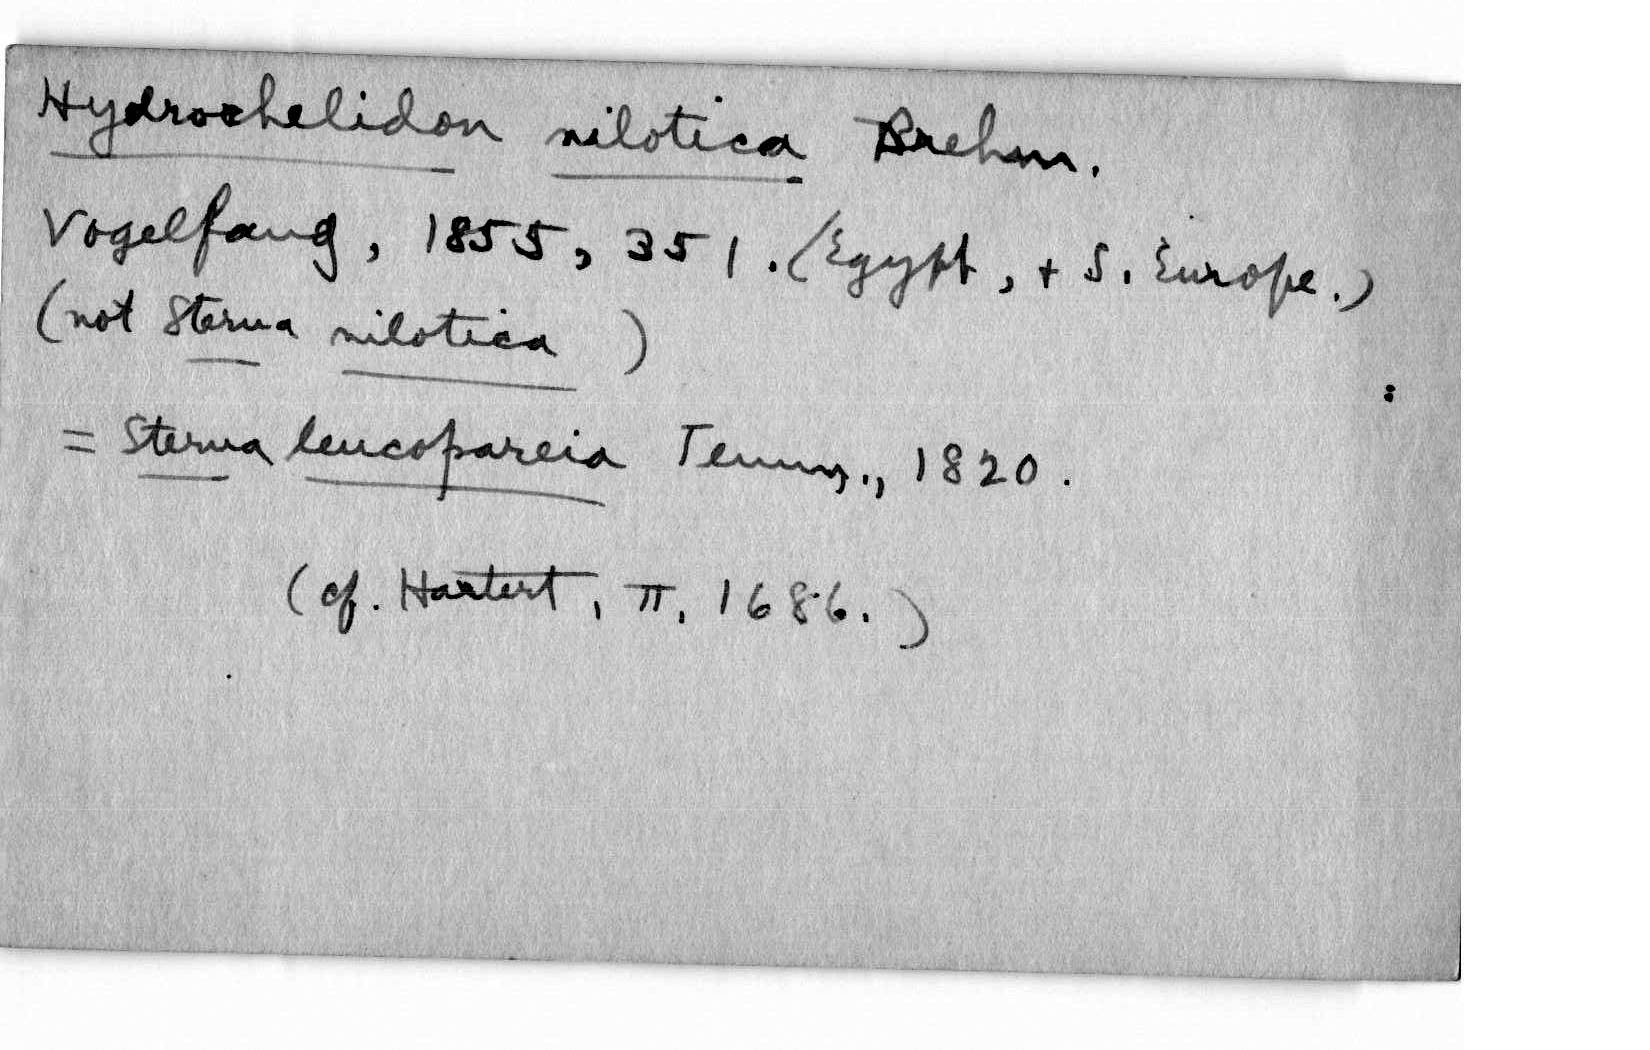 Hydrochelidon nilotica Brehm.
Vogelfang, 1855, 351. (Egypt, + S. Europe.)
(not Sterna nilotica )
= Sterna leucopareia Temm., 1820.
(cf. Hartert, II, 1686.)